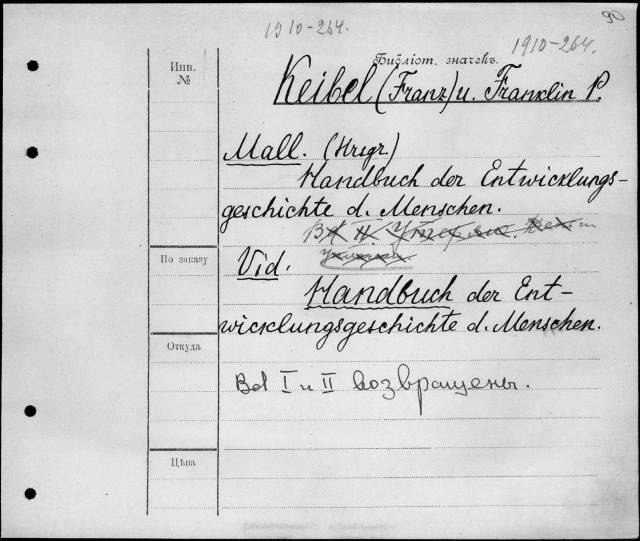 90
1910-264.
1910-264.
Библіот. значекъ.
Инв.
№
Keibel (Franz) u. Franklin P.
Mall. (Hrsgr.)
Handbuch der Entwicklungs-
geschichte d. Menschen.
Bd II. Утерян.
По заказу
Vid.
Handbuch der Ent-
wicklungsgeschichte d. Menschen.
Откуда
Bd I и II возвращены.
Цѣна